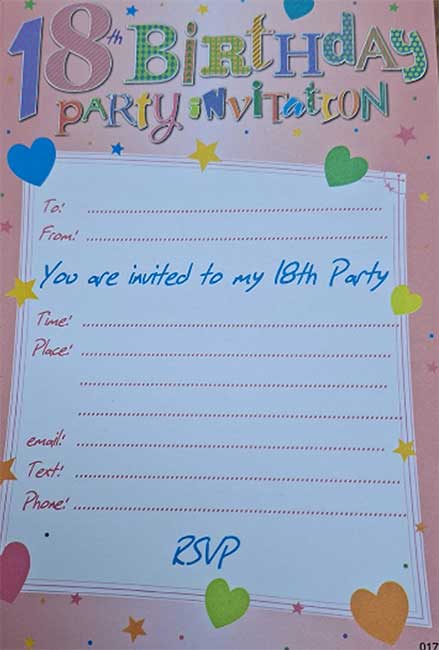 18th BirthdAy
PARTy iNVitAtiON
To:
From:
You are invited to my 18th Party
Time:
Place:
email:
Text:
Phone:
RSVP
017